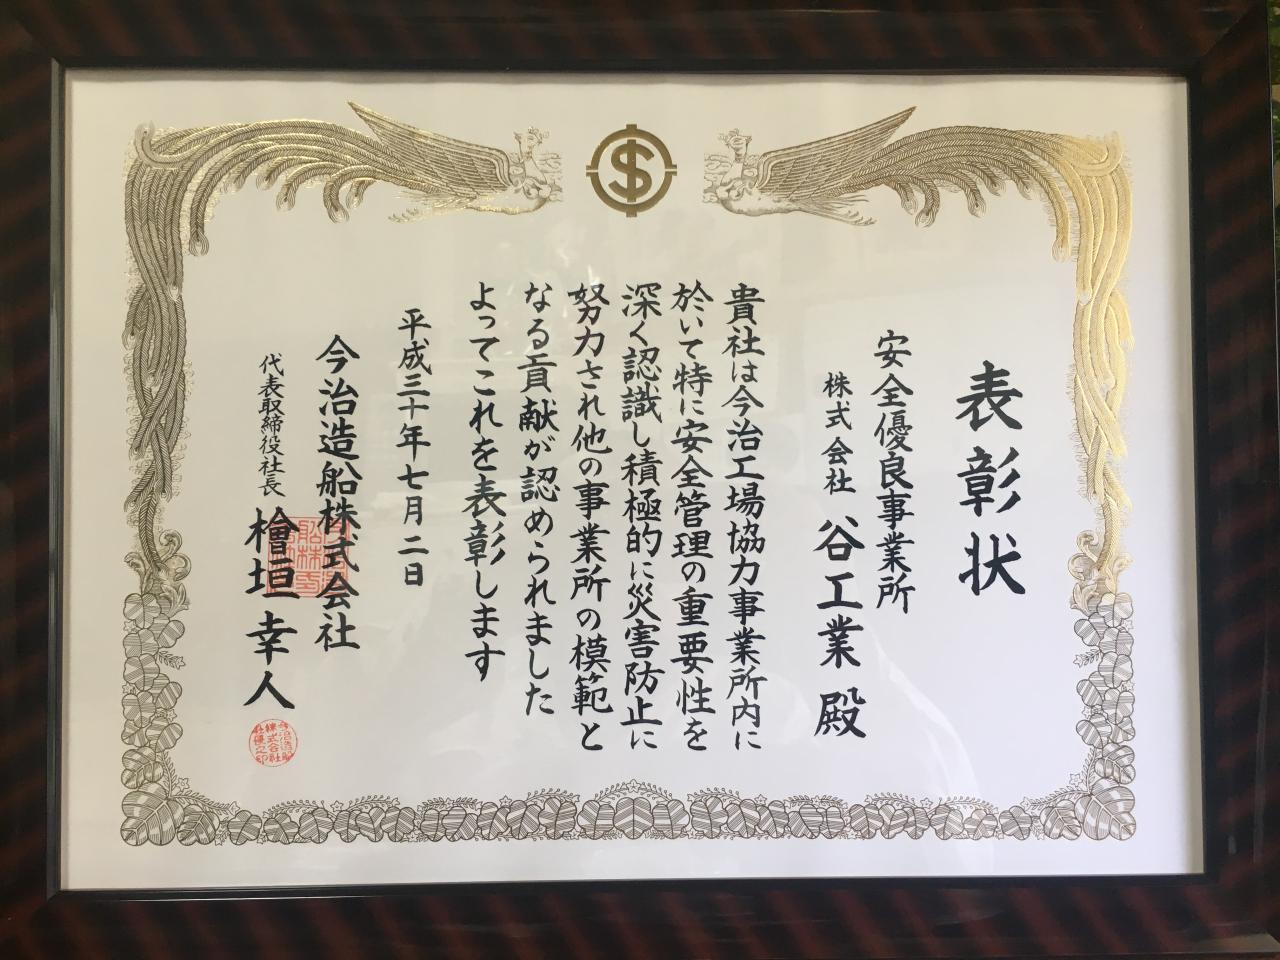 表彰状
安全優良事業所
株式会社 谷工業 殿
貴社は今治工場協力事業所内に
於いて特に安全管理の重要性を
深く認識し積極的に災害防止に
努力され他の事業所の模範と
なる貢献が認められました
よってこれを表彰します
平成三十年七月二日
今治造船株式会社
代表取締役社長 檜垣幸人